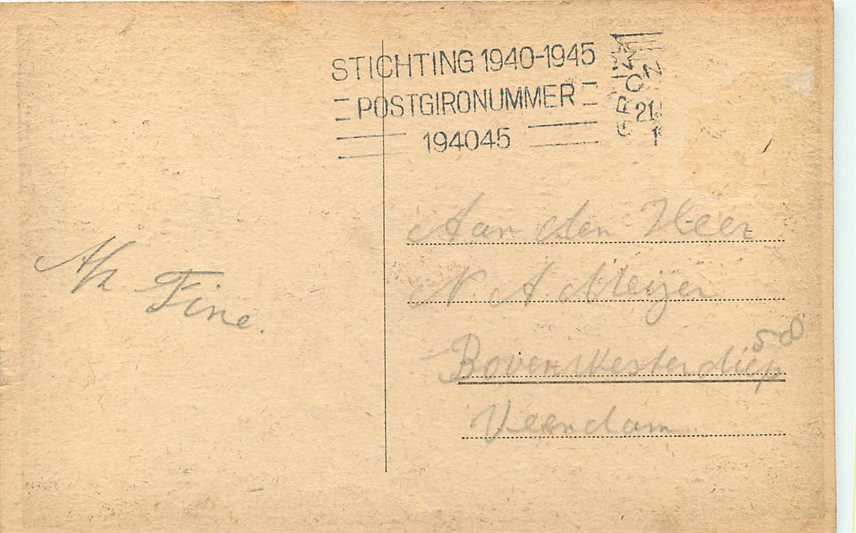 STICHTING 1940-1945
POSTGIRONUMMER
194045
GRON
21
Aan den Heer
N. A. Meijer
Bovenwesterdiep 58
Veendam
Afz Fine.